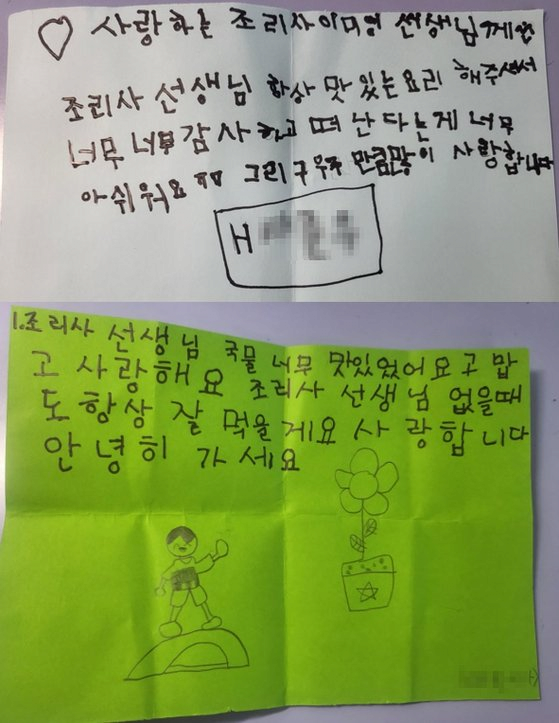 ♡ 사랑하는 조리사이미영 선생님께
조리사 선생님 항상 맛있는요리 해주셔서
너무 너무 감사하고 떠난다는게 너무
아쉬워요 ㅠㅠ 그리구 우주 만큼많이 사랑합니다
1.조리사 선생님 국물 너무 맛있었어요 고맙
고 사랑해요 조리사 선생님 없을때
도 항상 잘 먹을게요 사랑합니다
안녕히 가세요